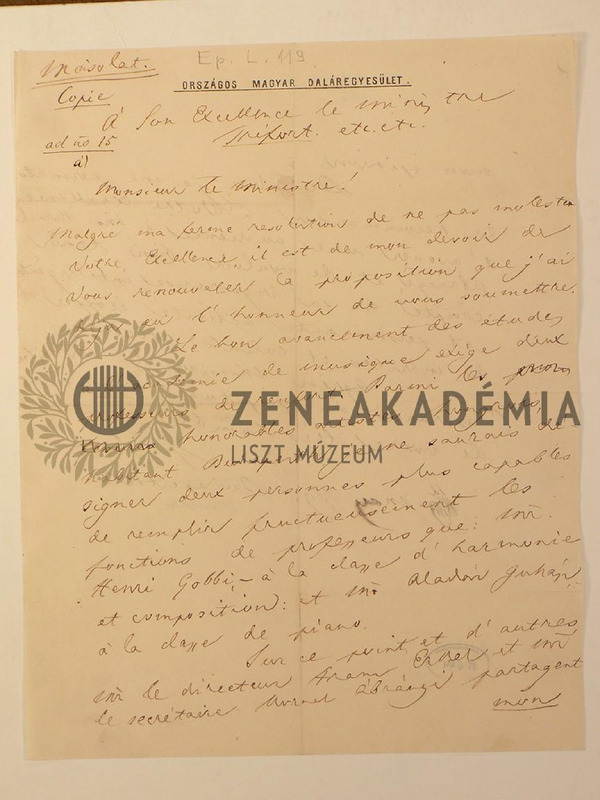 Másolat.
Ep. L. 119
ORSZÁGOS MAGYAR DALÁREGYESÜLET.
Copie
À Son Excellence le Ministre
Tréfort. etc. etc.
ad no 15
a)
Monsieur le Ministre!
Malgré ma ferme resolution de ne pas molester
Votre Excellence, il est de mon devoir de
Vous renouveler la proposition que j'ai
eu l'honneur de vous soumettre.
Le bon avancement des études
de musique exige deux
professeurs de renfort. Parmi les
honorables artistes hongrois,
habitant Budapest, je ne saurais de
signer deux personnes plus capables
de remplir fructueusement les
fonctions de professeurs que: Mr.
Henri Gobbi, – à la classe d'harmonie
et composition: et Mr Aladár Juhász,
à la classe de piano.
Sur ce point et d'autres
Mr le directeur Franz Erkel et Mr
le secrétaire Kornel Ábrányi partagent
mon
ZENEAKADÉMIA
LISZT MÚZEUM